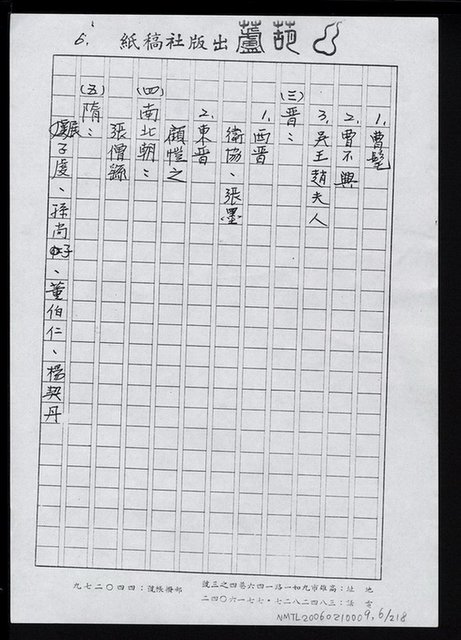 葫蘆出版社稿紙
6.
1.曹髦
2.曹不興
3.吳王趙夫人
(三)晋：
1.西晋
衛協、張墨
2.東晋
顧愷之
(四)南北朝：
張僧繇
(五)隋：
展子虔、孫尚子、董伯仁、楊契丹
地址：高雄市九如一路一四六巷四之三號
電話：三八四二八二七・七七一六〇四二
郵撥帳號：四四〇二七九
NMTL20060210009, 6/218